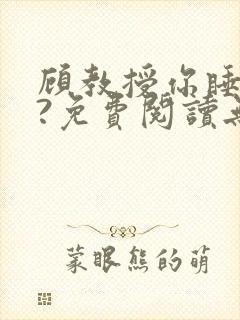 顧教授你睡
?免費閱讀
蒙眼熊的萌